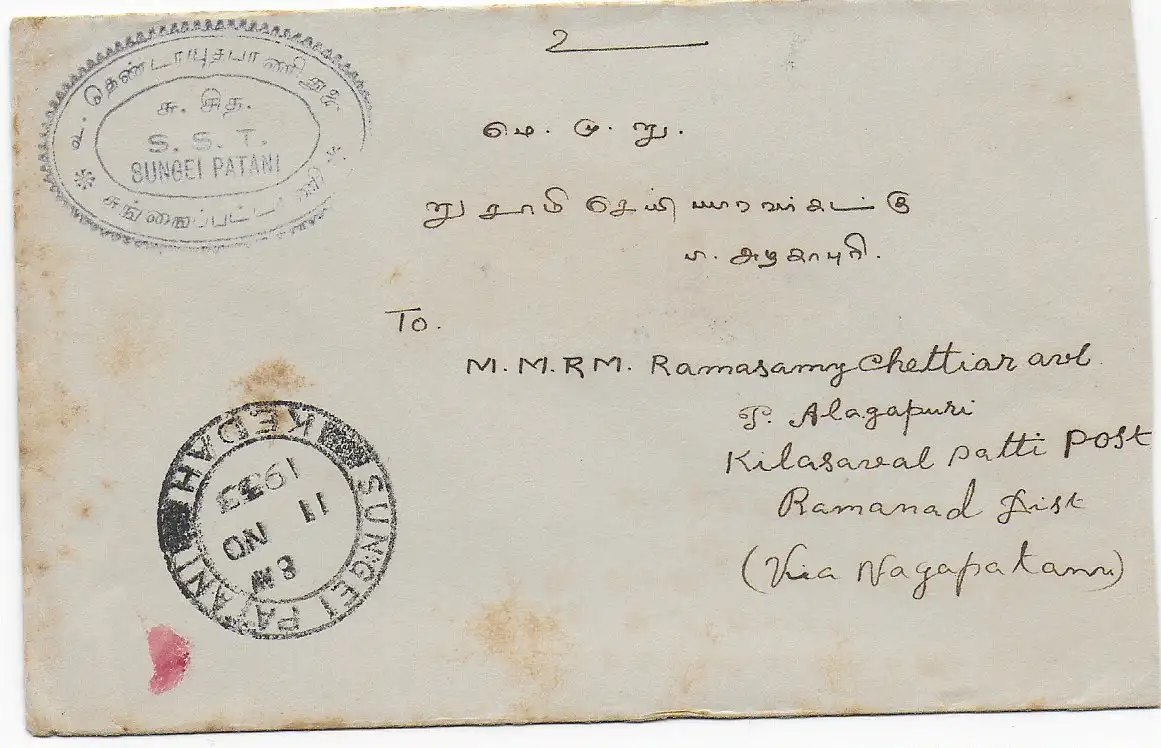 உ
உ. தெண்டாயுதபாணி துணை
சு. சித.
S. S. T.
SUNGEI PATANI
சுங்கைப்பட்டா
மெ. மு. று.
ராமசாமி செட்டியாரவர்கட்கு
ப. அழகாபுரி.
To.
M. M. RM. Ramasamy Chettiar avl
P. Alagapuri
Kilasaveal patti post
Ramanad Dist
(Via Nagapatam)
KEDAH
1933
11 NO
SUNGEI PATANI